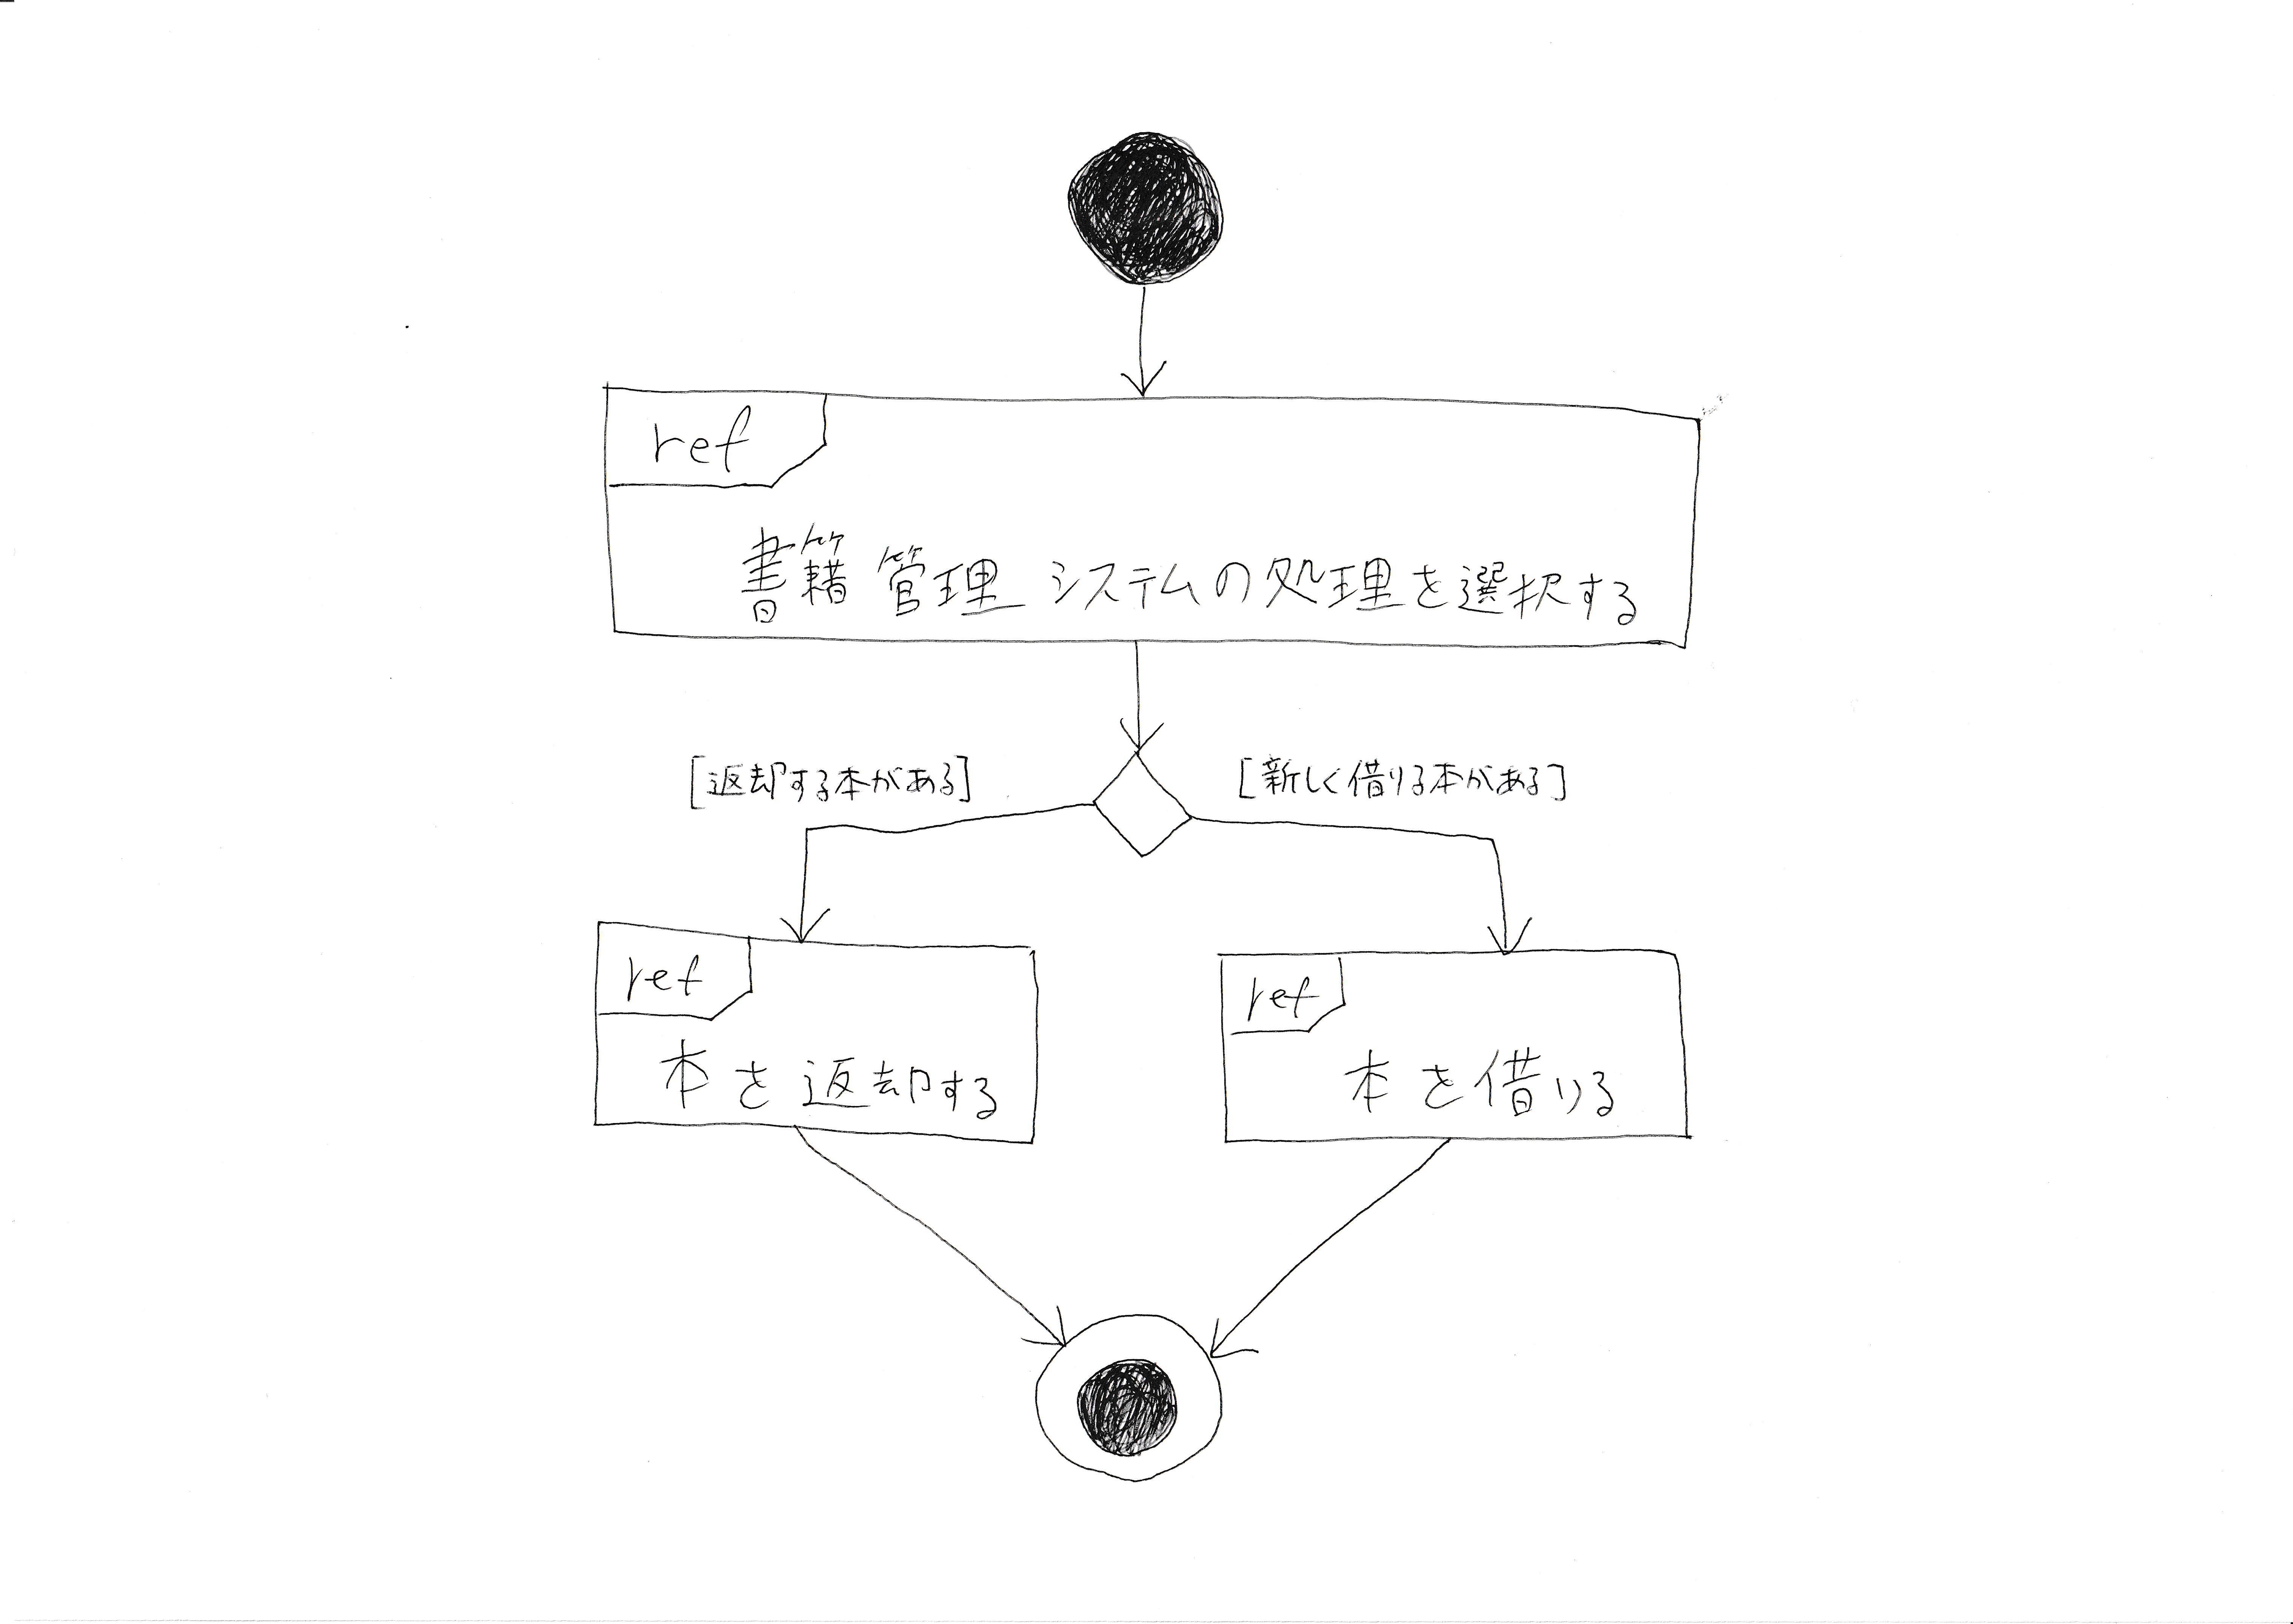 ref
書籍管理システムの処理を選択する
[返却する本がある]
[新しく借りる本がある]
ref
本を返却する
ref
本を借りる